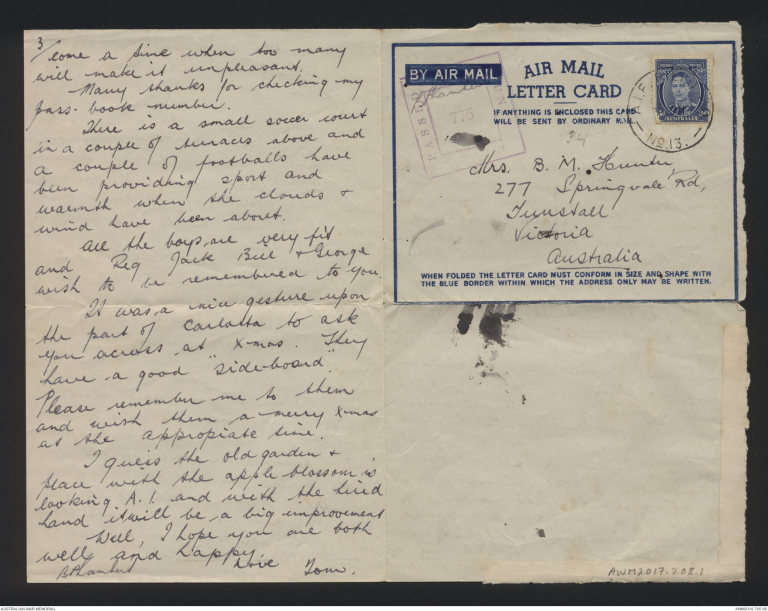 3
come a time when too many
will make it unpleasant.
Many thanks for checking my
pass-book number.
There is a small soccer court
in a couple of terraces above and
a couple of footballs have
been providing sport and
warmth when the clouds &
wind have been about.
All the boys are very fit
and Reg Jack Bill & George
wish to be remembered to you.
It was a nice gesture upon
the part of Carlotta to ask
you across at X-mas. They
have a good "side-board".
Please remember me to them
and wish them a merry X-mas
as the appropiate time.
I guess the old garden &
place with the apple blossom is
looking A.1. and with the hired
hand it will be a big improvement
Well, I hope you are both
well and happy.
Love Tom.
BY AIR MAIL
AIR MAIL
LETTER CARD
IF ANYTHING IS ENCLOSED THIS CARD
WILL BE SENT BY ORDINARY MAIL.
PASSED
773
AUSTRALIA
No. 13.
Mrs. B. M. Hunter
277 Springvale Rd,
Tunstall
Victoria
Australia
WHEN FOLDED THE LETTER CARD MUST CONFORM IN SIZE AND SHAPE WITH
THE BLUE BORDER WITHIN WHICH THE ADDRESS ONLY MAY BE WRITTEN.
AWM2017.208.1
AUSTRALIAN WAR MEMORIAL